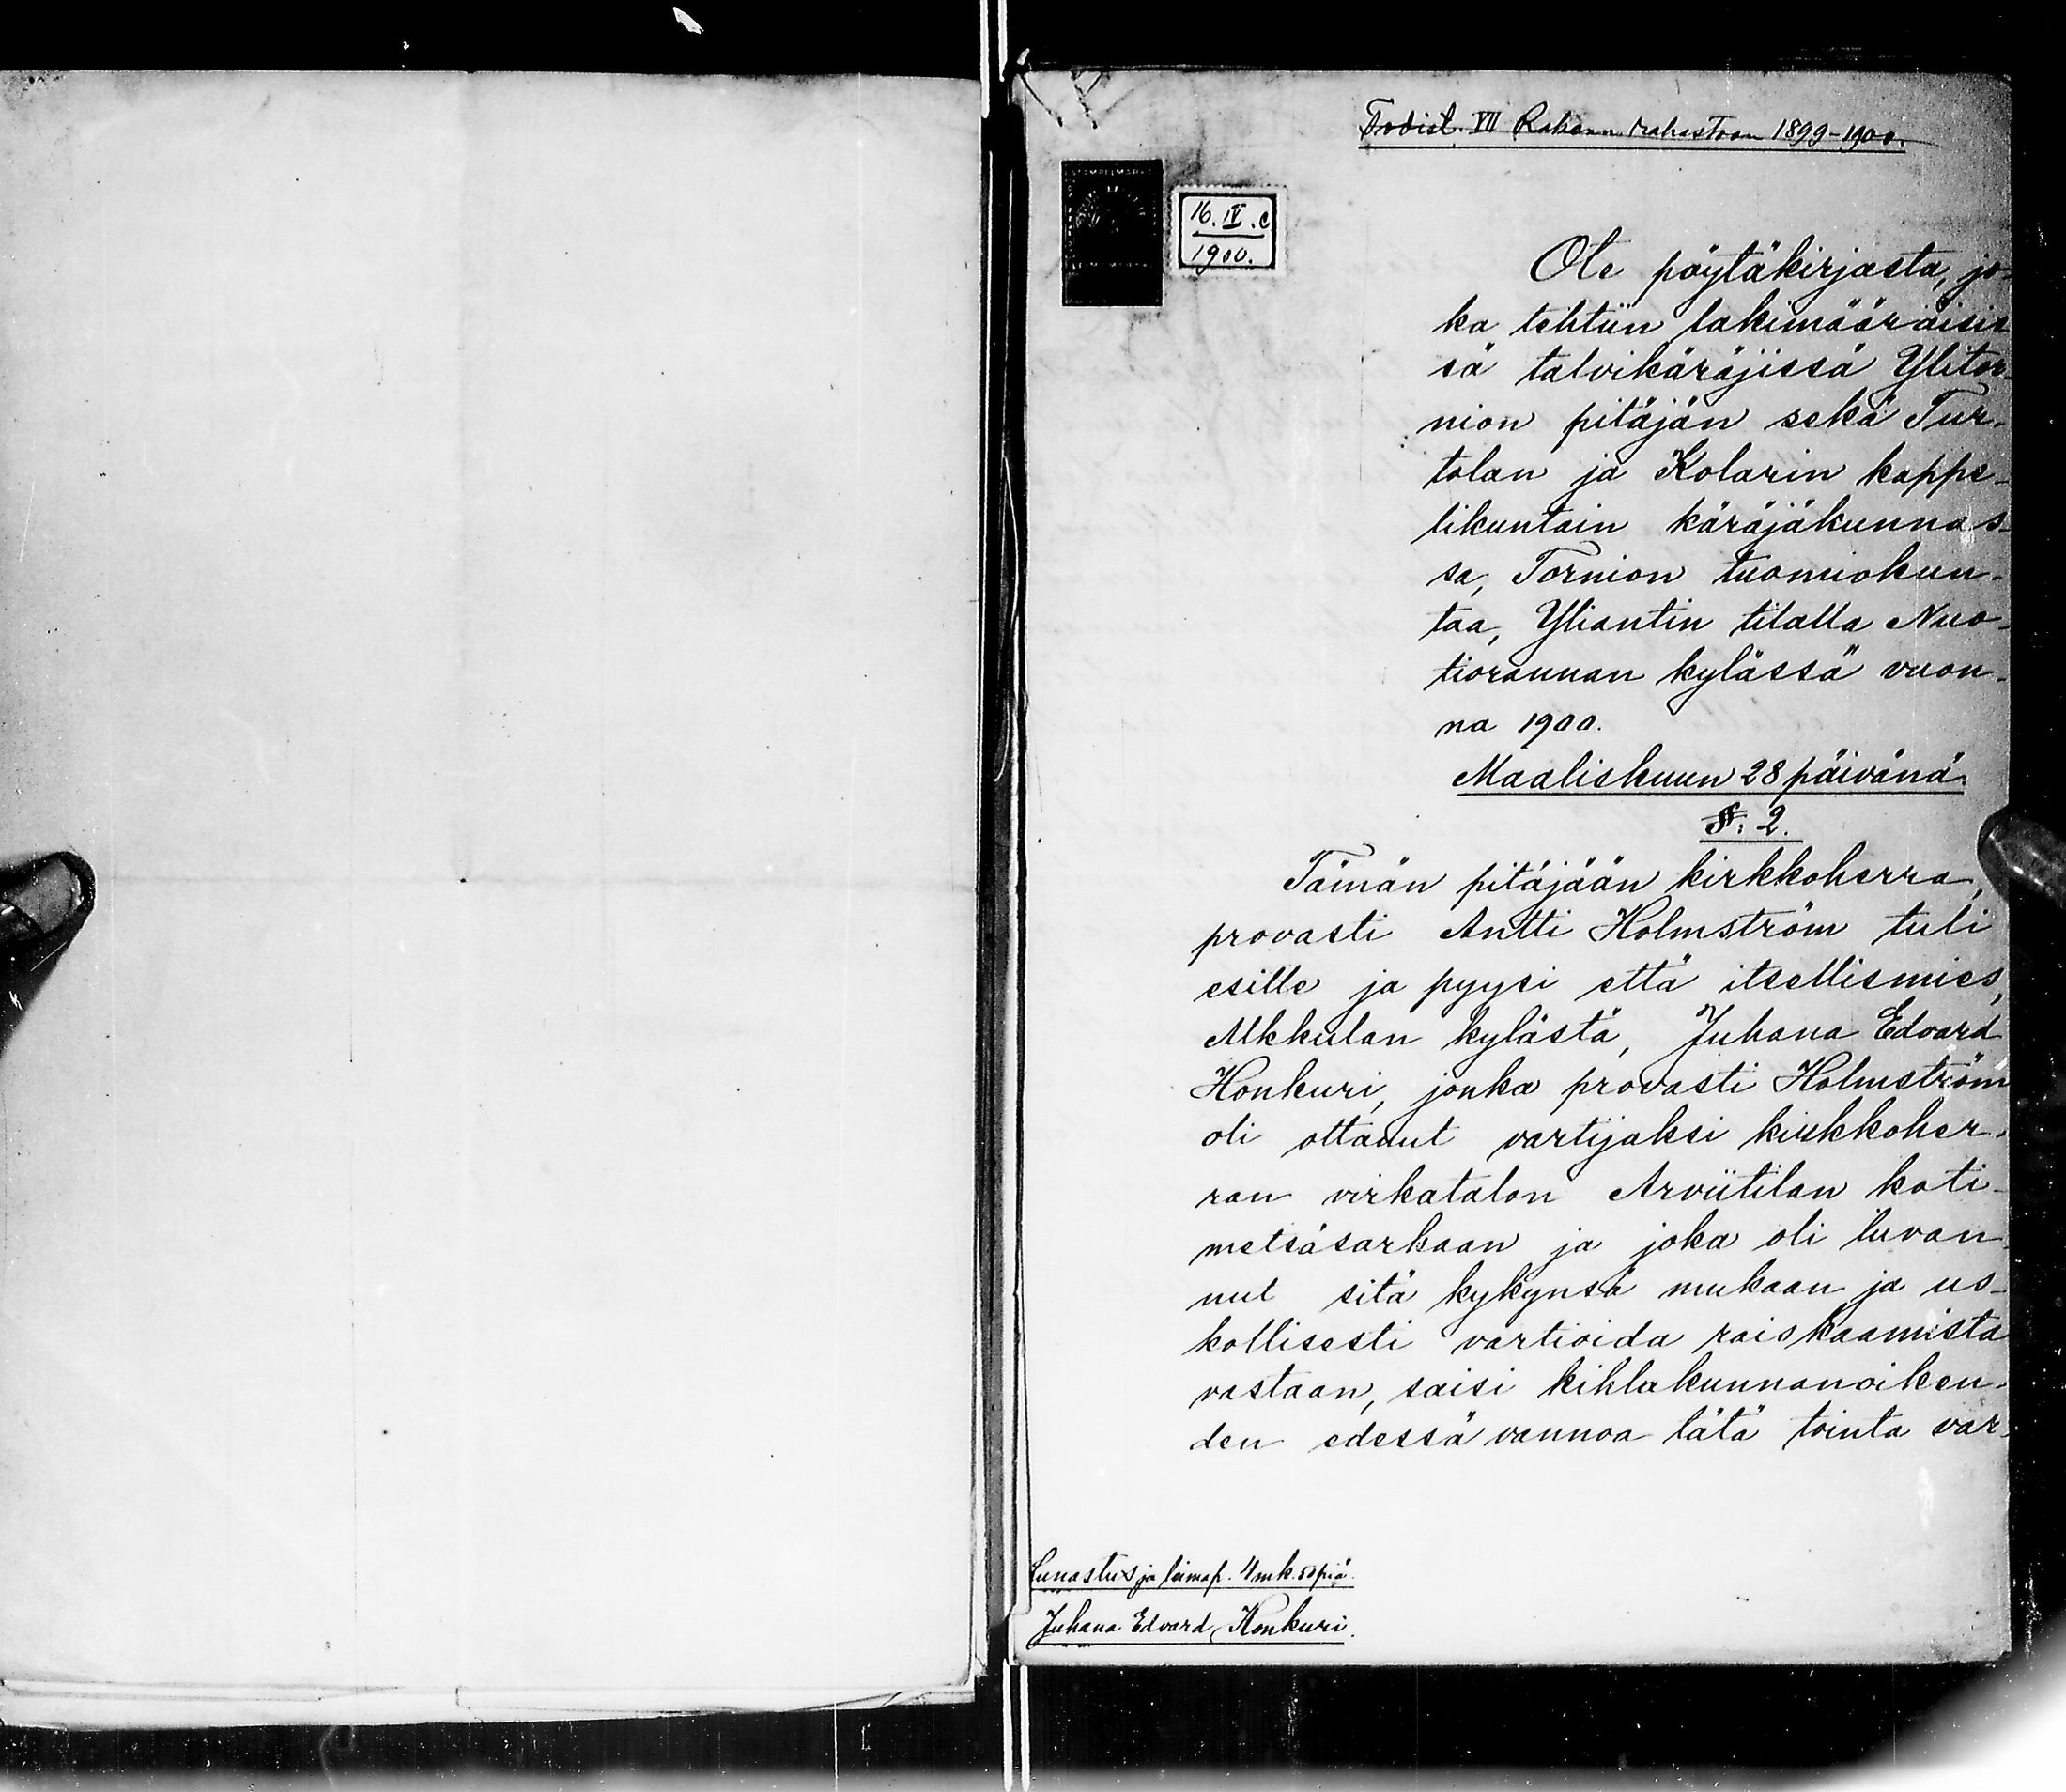 Todist. VII Rahaan rahastoon 1899-1900.
STÄMPELMÄRKE
16. IV. C
1900.
Ote pöytäkirjasta, jo-
ka tehtiin lakimääräisis
sä talvikäräjissä Ylitor-
nion pitäjän sekä Tur-
tolan ja Kolarin kappe-
likuntain käräjäkunnas-
sa, Tornion tuomiokun-
taa, Yliantin tilalla Nuo-
tiorannan kylässä vuon-
na 1900.
Maaliskuun 28 päivänä.
§: 2.
Tämän pitäjään kirkkoherra,
provasti Antti Holmström tuli
esille ja pyysi että itsellismies,
Alkkulan kylästä, Juhana Edvard
Honkuri, jonka provasti Holmström
oli ottanut vartijaksi kirkkoher-
ran virkatalon Arviitilan koti-
metsäsarkaan ja joka oli luvan-
nut sitä kykynsä mukaan ja us-
kollisesti vartioida raiskaamista
vastaan, saisi kihlakunnanoikeu-
den edessä vannoa tätä tointa var-
Lunastus ja leimap. 4 mk. 50 piä.
Juhana Edvard Honkuri.